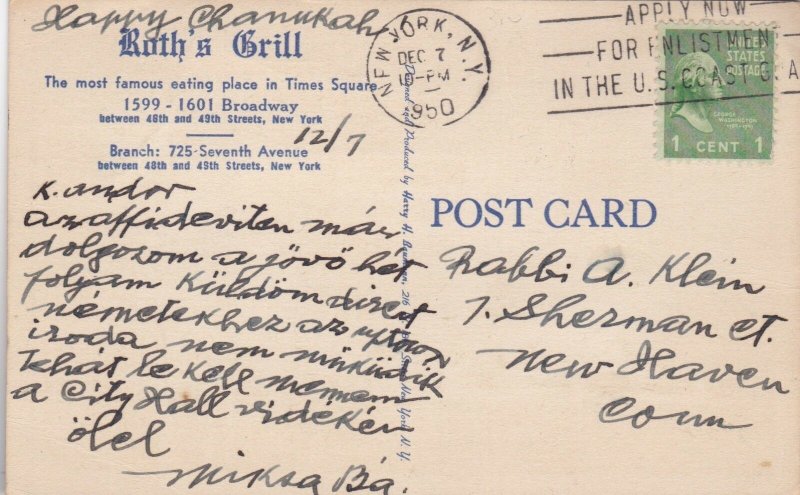 Happy Chanukah
Roth's Grill
The most famous eating place in Times Square
1599 - 1601 Broadway
between 48th and 49th Streets, New York
12/7
Branch: 725 Seventh Avenue
between 48th and 49th Streets, New York
K. andor
az affideviten már
dolgozom a jövö hét
folyam küldöm direct
németekhez az uptown
iroda nem müküdik
tehát le kell mennem
a City Hall vidékén
ölel
Miksa Bá.
Designed and Produced by Harry H.
New York, N. Y.
NEW YORK, N.Y.
DEC 7
PM
1950
APPLY NOW
FOR ENLISTMEN
IN THE U.S. COAST GUA
UNITED
STATES
POSTAGE
GEORGE
WASHINGTON
1 CENT 1
POST CARD
Rabbi A. Klein
7. Sherman ct.
New Haven
Conn